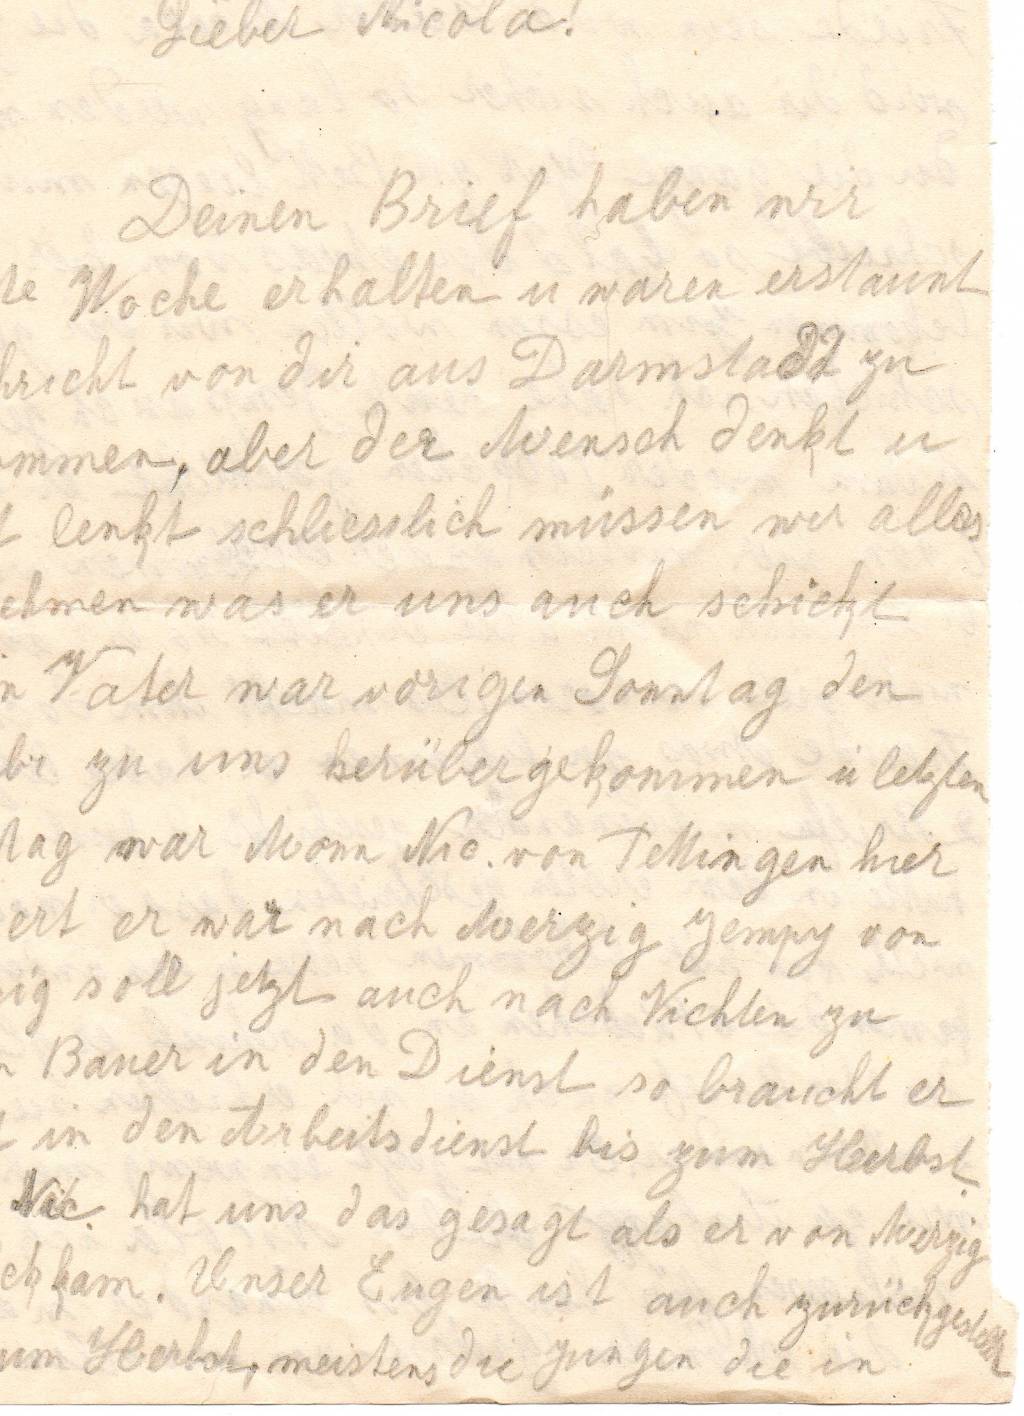 Lieber Nicola!
Deinen Brief haben wir
te Woche erhalten u waren erstaunt
hricht von dir aus Darmstadt zu
ommen, aber der Mensch denkt u
t lenkt schliesslich müssen wir alles
ehmen was er uns auch schickt
n Vater war vorigen Sonntag den
br zu uns herübergekommen u letzten
tag war Monn Nic. von Tettingen hier
ert er war nach Merzig Jempy von
ig soll jetzt auch nach Vichten zu
n Bauer in den Dienst so braucht er
t in den Arbeitsdienst bis zum Herbst.
Nic. hat uns das gesagt als er von Merzig
ck kam. Unser Eugen ist auch zurückgestellt
um Herbst, meistens die Jungen die in